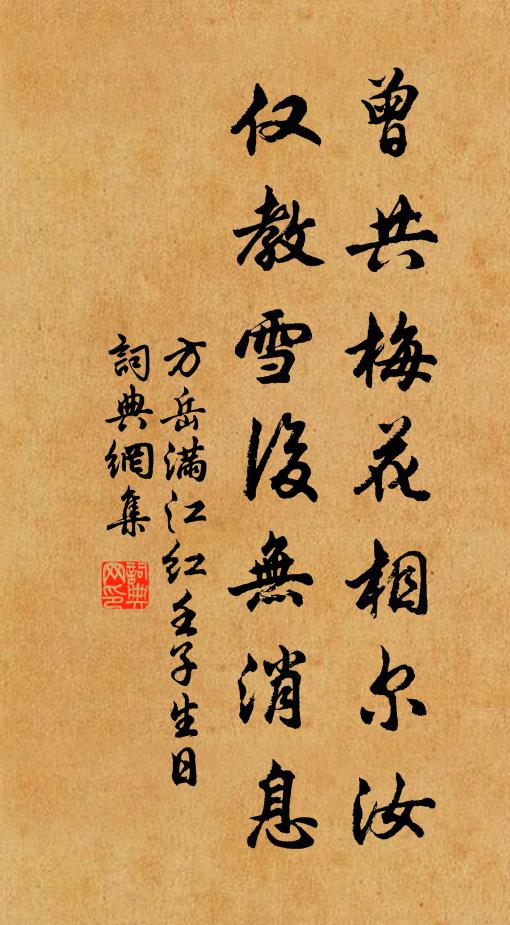 曾共梅花相尔汝
仅教雪後無消息
方岳满江红壬子生日
詞典網集
詞典網印